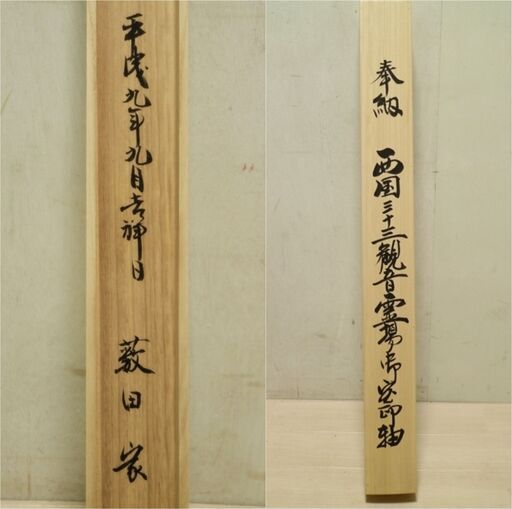 平成九年九月吉祥日
薮田家
奉納
西国三十三観音霊場御宝印軸